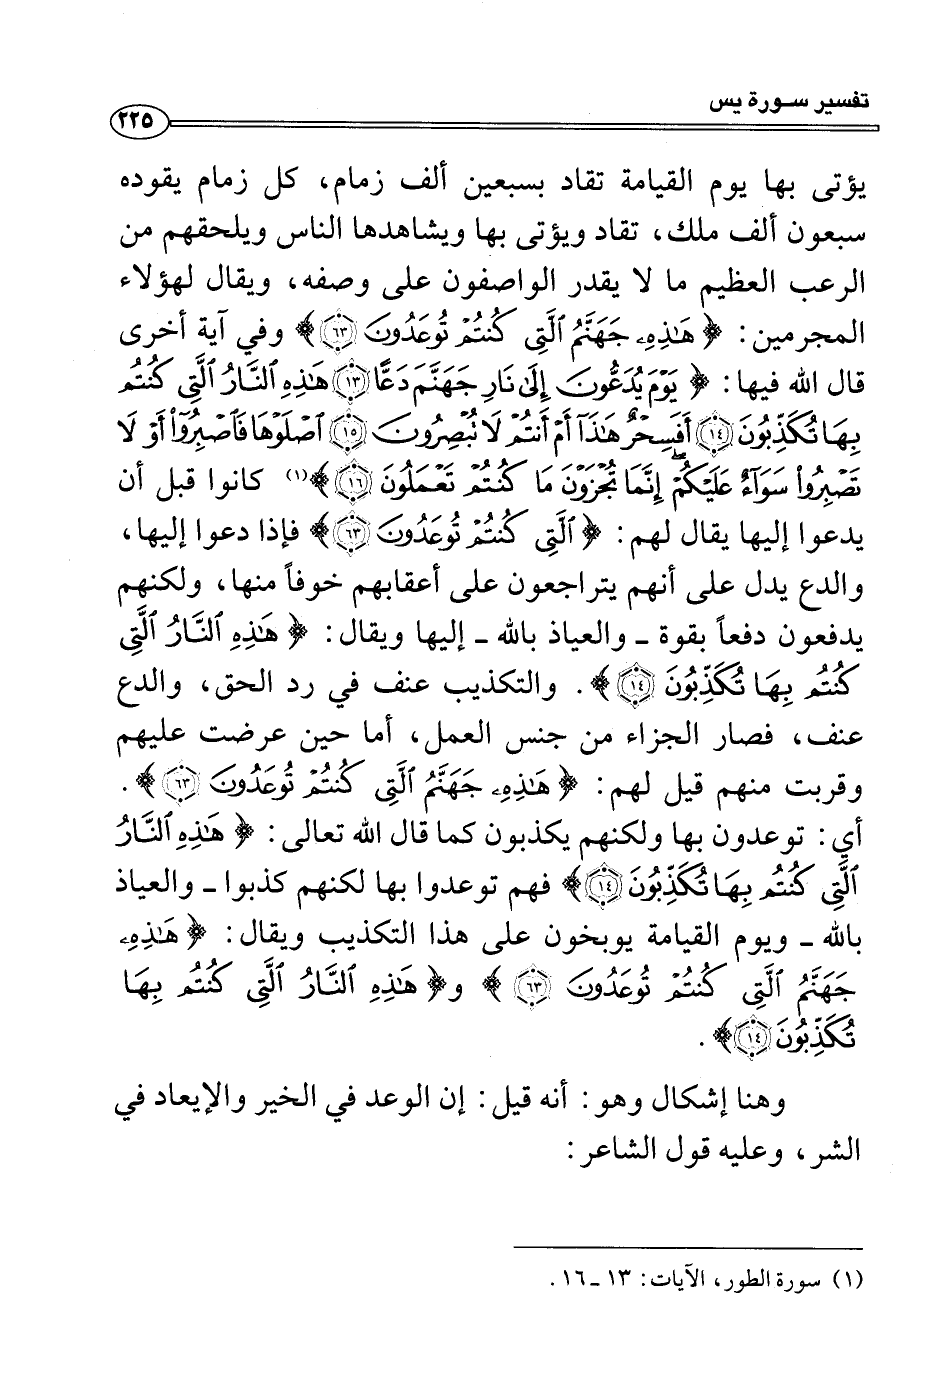 تفسير سورة يس
٢٢٥
يؤتى بها يوم القيامة تقاد بسبعين ألف زمام، كل زمام يقوده
سبعون ألف ملك، تقاد ويؤتى بها ويشاهدها الناس ويلحقهم من
الرعب العظيم ما لا يقدر الواصفون على وصفه، ويقال لهؤلاء
المجرمين: ﴿ هَٰذِهِۦ جَهَنَّمُ ٱلَّتِى كُنتُمْ تُوعَدُونَ ٦٣ ﴾ وفي آية أخرى
قال الله فيها: ﴿ يَوْمَ يُدَعُّونَ إِلَىٰ نَارِ جَهَنَّمَ دَعًّا ١٣ هَٰذِهِ ٱلنَّارُ ٱلَّتِى كُنتُم
بِهَا تُكَذِّبُونَ ١٤ أَفَسِحْرٌ هَٰذَآ أَمْ أَنتُمْ لَا تُبْصِرُونَ ١٥ ٱصْلَوْهَا فَٱصْبِرُوٓا۟ أَوْ لَا
تَصْبِرُوا۟ سَوَآءٌ عَلَيْكُمْ ۖ إِنَّمَا تُجْزَوْنَ مَا كُنتُمْ تَعْمَلُونَ ١٦ ﴾(١) كانوا قبل أن
يدعوا إليها يقال لهم: ﴿ ٱلَّتِى كُنتُمْ تُوعَدُونَ ٦٣ ﴾ فإذا دعوا إليها،
والدع يدل على أنهم يتراجعون على أعقابهم خوفاً منها، ولكنهم
يدفعون دفعاً بقوة ـ والعياذ بالله ـ إليها ويقال: ﴿ هَٰذِهِ ٱلنَّارُ ٱلَّتِى
كُنتُم بِهَا تُكَذِّبُونَ ١٤ ﴾. والتكذيب عنف في رد الحق، والدع
عنف، فصار الجزاء من جنس العمل، أما حين عرضت عليهم
وقربت منهم قيل لهم: ﴿ هَٰذِهِۦ جَهَنَّمُ ٱلَّتِى كُنتُمْ تُوعَدُونَ ٦٣ ﴾.
أي: توعدون بها ولكنهم يكذبون كما قال الله تعالى: ﴿ هَٰذِهِ ٱلنَّارُ
ٱلَّتِى كُنتُم بِهَا تُكَذِّبُونَ ١٤ ﴾ فهم توعدوا بها لكنهم كذبوا ـ والعياذ
بالله ـ ويوم القيامة يوبخون على هذا التكذيب ويقال: ﴿ هَٰذِهِۦ
جَهَنَّمُ ٱلَّتِى كُنتُمْ تُوعَدُونَ ٦٣ ﴾ و﴿ هَٰذِهِ ٱلنَّارُ ٱلَّتِى كُنتُم بِهَا
تُكَذِّبُونَ ١٤ ﴾.
وهنا إشكال وهو: أنه قيل: إن الوعد في الخير والإيعاد في
الشر، وعليه قول الشاعر:
(١) سورة الطور، الآيات: ١٣ ـ ١٦.